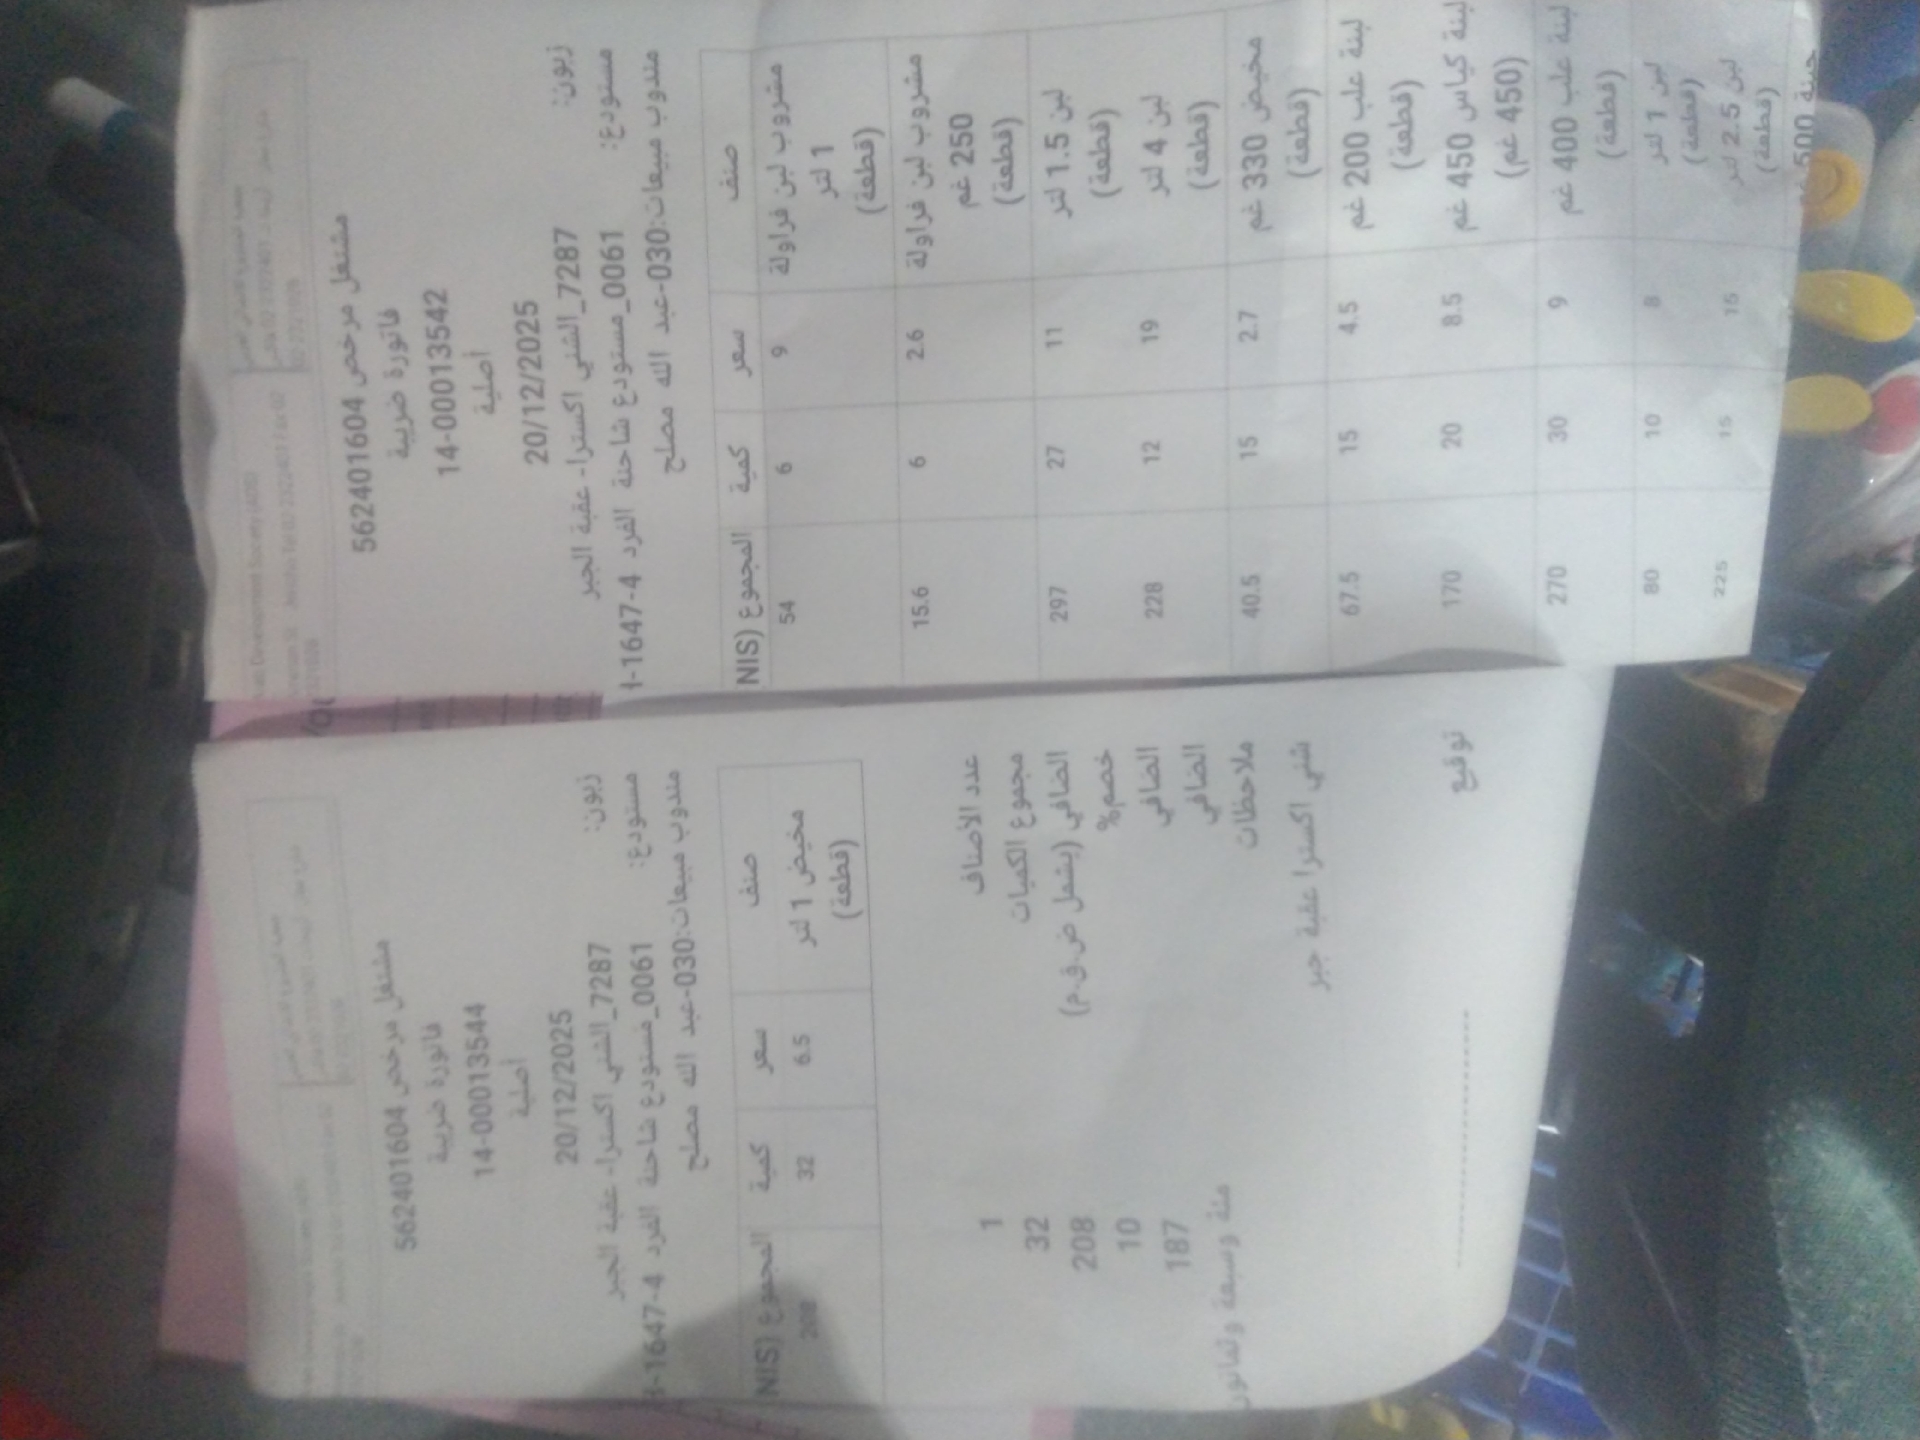 مشتغل مرخص 562401604
فاتورة ضريبة
14-00013542
أصلية
20/12/2025
زبون: 7287_الشني اكسترا- عقبة الجبر
مستودع: 0061_مستودع شاحنة الفرد 4-1647-H
مندوب مبيعات:030-عبد الله مصلح
صنف سعر كمية المجموع (NIS
مشروب لبن فراولة 9 6 54
1 لتر
(قطعة)
مشروب لبن فراولة 2.6 6 15.6
250 غم
(قطعة)
لبن 1.5 لتر 11 27 297
(قطعة)
لبن 4 لتر 19 12 228
(قطعة)
مخيض 330 غم 2.7 15 40.5
(قطعة)
لبنة علب 200 غم 4.5 15 67.5
(قطعة)
لبنة كياس 450 غم 8.5 20 170
(450 غم)
لبنة علب 400 غم 9 30 270
(قطعة)
لبن 1 لتر 8 10 80
(قطعة)
لبن 2.5 لتر 15 15 225
(قطعة)
500
مشتغل مرخص 562401604
فاتورة ضريبة
14-00013544
أصلية
20/12/2025
زبون: 7287_الشني اكسترا- عقبة الجبر
مستودع: 0061_مستودع شاحنة الفرد 4-1647-
مندوب مبيعات:030-عبد الله مصلح
صنف سعر كمية المجموع (NIS
مخيض 1 لتر 6.5 32 208
(قطعة)
عدد الأصناف 1
مجموع الكميات 32
الصافي (يشمل ض.ق.م) 208
خصم% 10
الصافي 187
الصافي مئة وسبعة وثمانون
ملاحظات
شني اكسترا عقبة جبر
توقيع